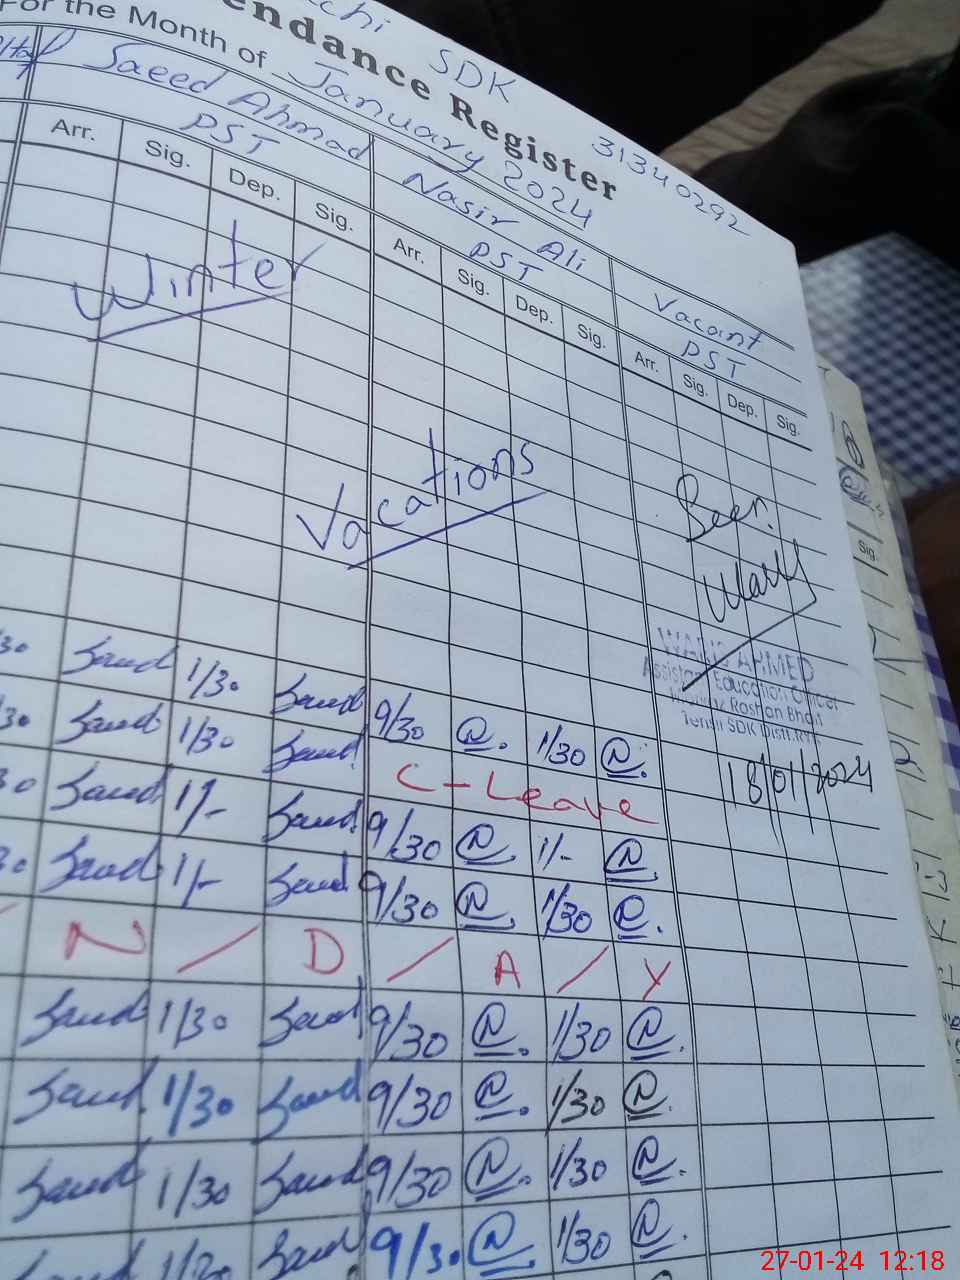 chi SDK
endance Register
For the Month of January 2024
31340292
Saeed Ahmad
Nasir Ali
Vacant
PST
PST
PST
Arr. Sig. Dep. Sig. Arr. Sig. Dep. Sig. Arr. Sig. Dep. Sig.
Winter
Vacations
Seen.
WARIS AHMED
Assistant Education Officer
Markaz Roshan Bhait
Tehsil SDK Distt. RYK
18/01/2024
Sig.
30 Saeed 1/30 Saeed 9/30 1/30
30 Saeed 1/30 Saeed C-Leave
30 Saeed 1/- Saeed 9/30 1/-
30 Saeed 1/- Saeed 9/30 1/30
N / D / A / Y
Saeed 1/30 Saeed 9/30 1/30
Saeed 1/30 Saeed 9/30 1/30
Saeed 1/30 Saeed 9/30 1/30
Saeed 1/30 Saeed 9/30 1/30
27-01-24 12:18